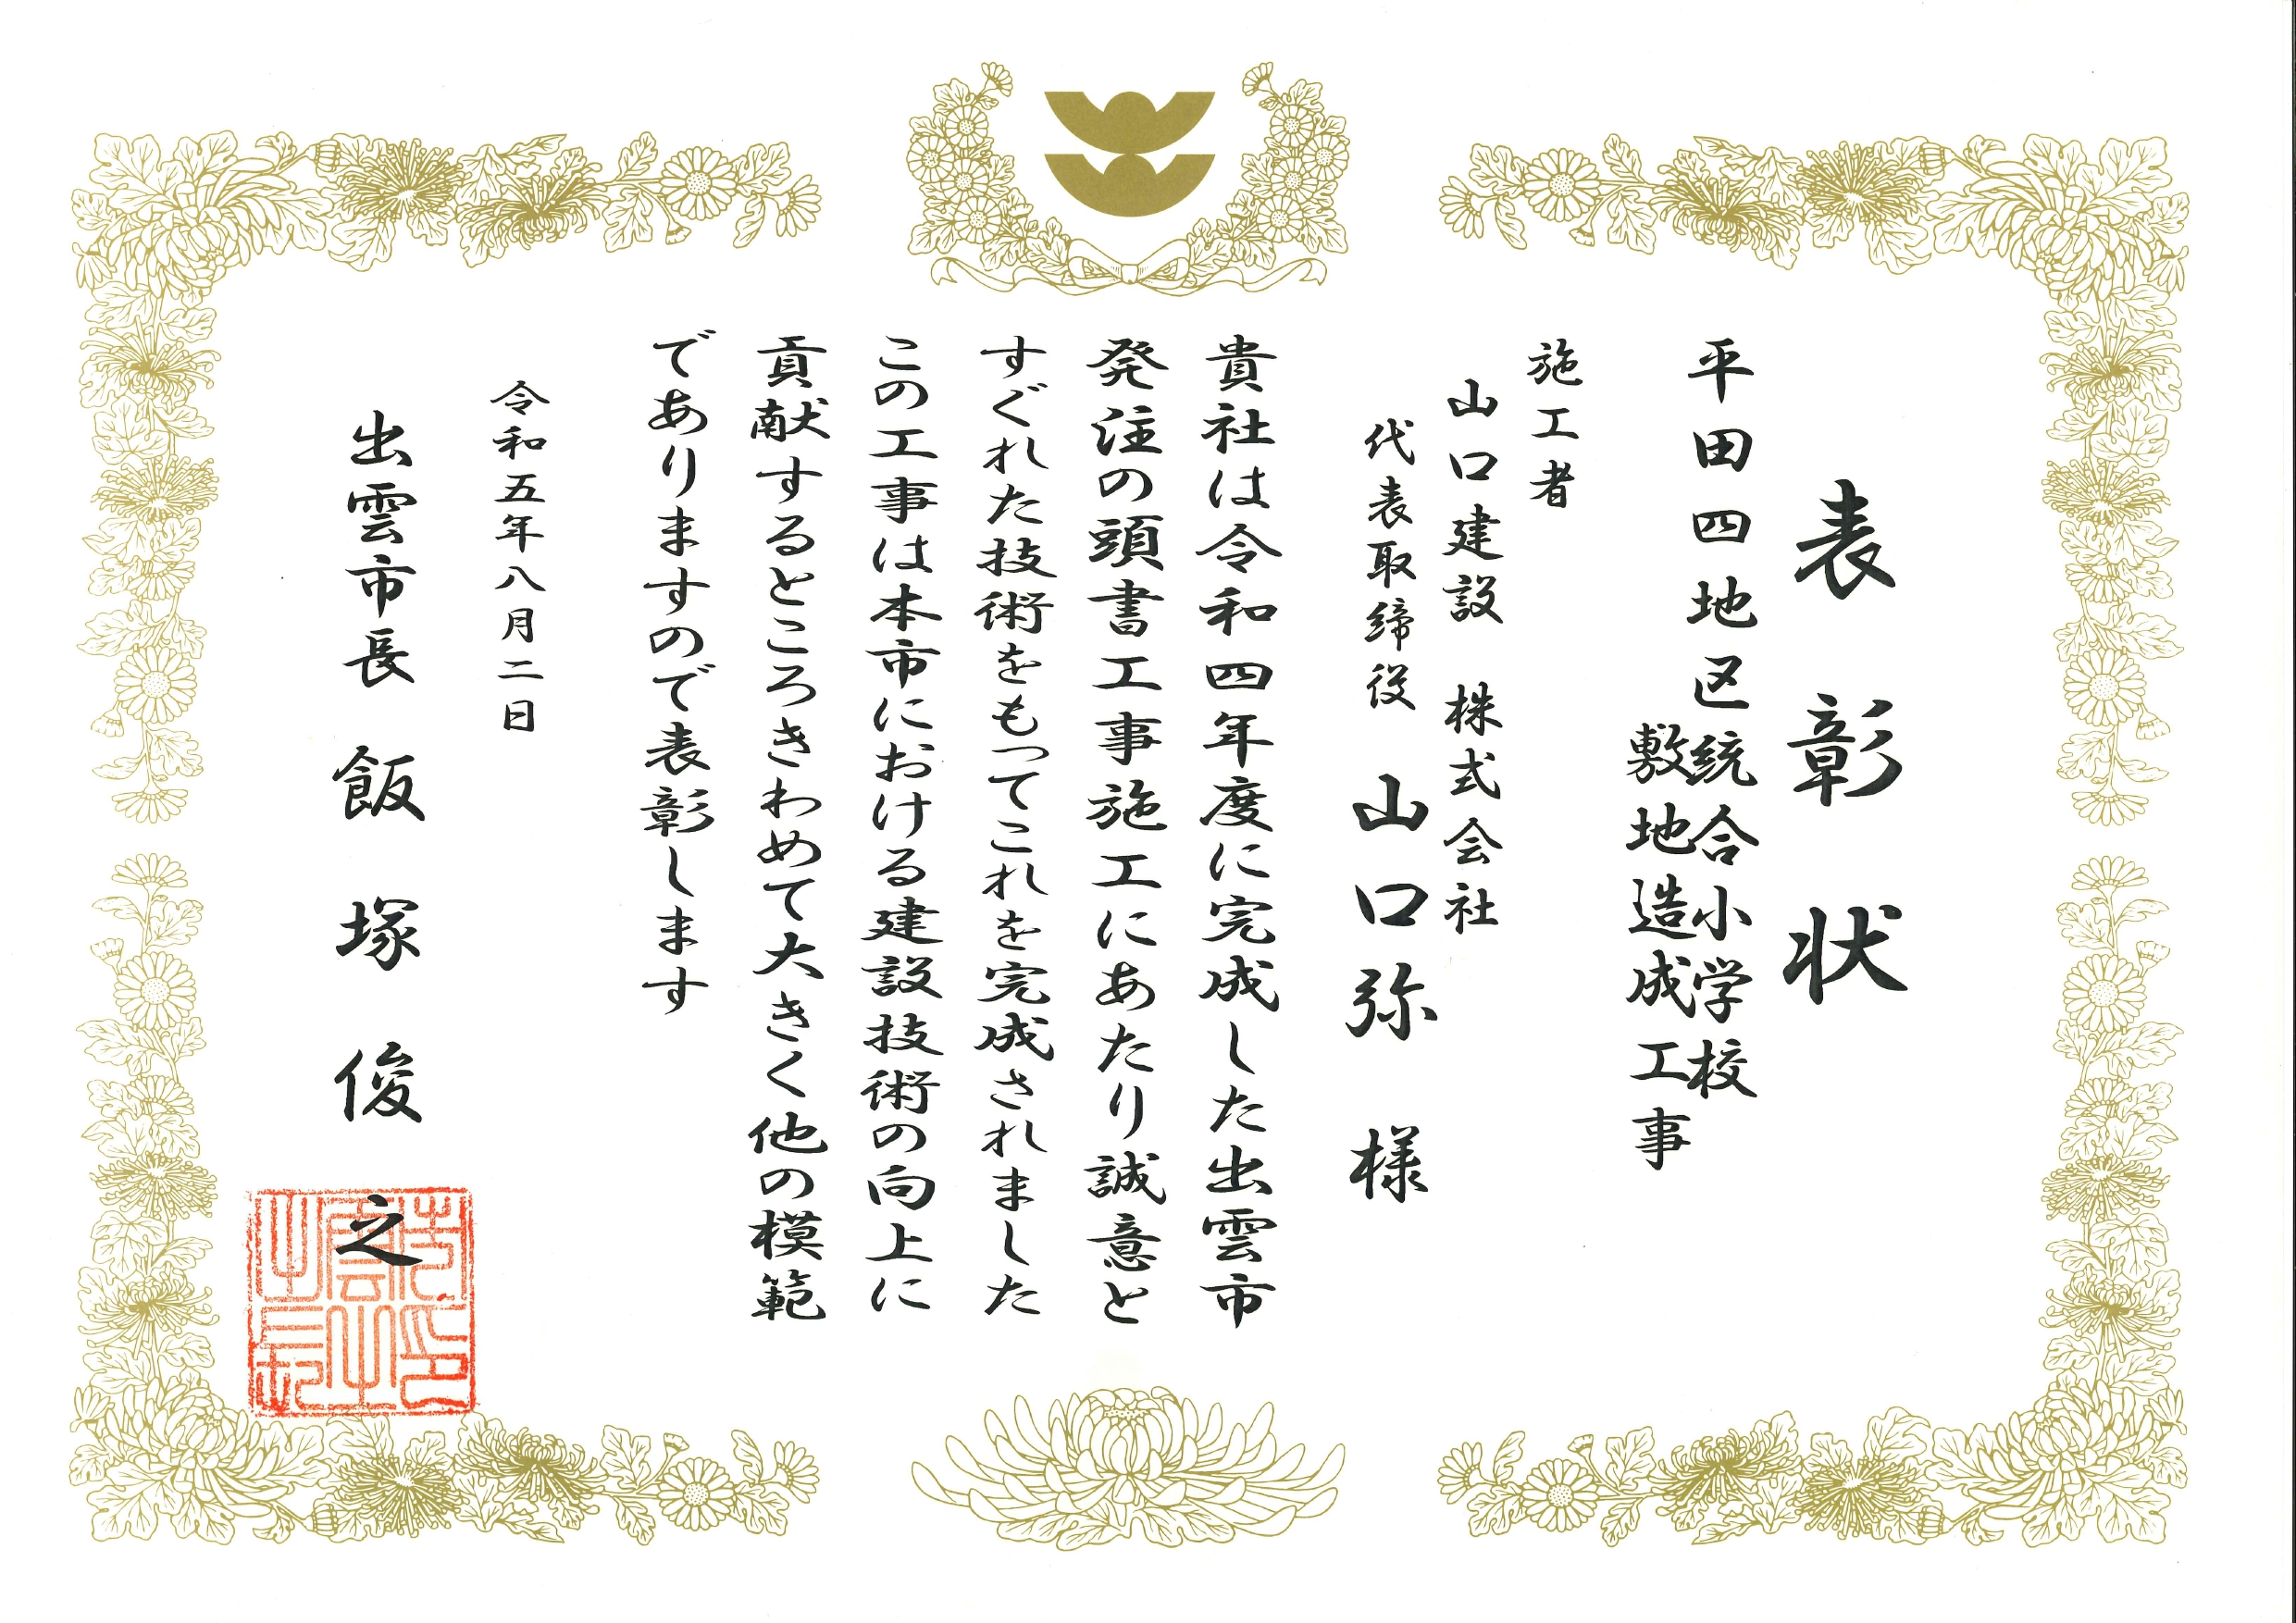 表彰状
平田四地区統合小学校
敷地造成工事
施工者
山口建設 株式会社
代表取締役 山口弥 様
貴社は令和四年度に完成した出雲市
発注の頭書工事施工にあたり誠意と
すぐれた技術をもってこれを完成されました
この工事は本市における建設技術の向上に
貢献するところきわめて大きく他の模範
でありますので表彰します
令和五年八月二日
出雲市長 飯塚俊之